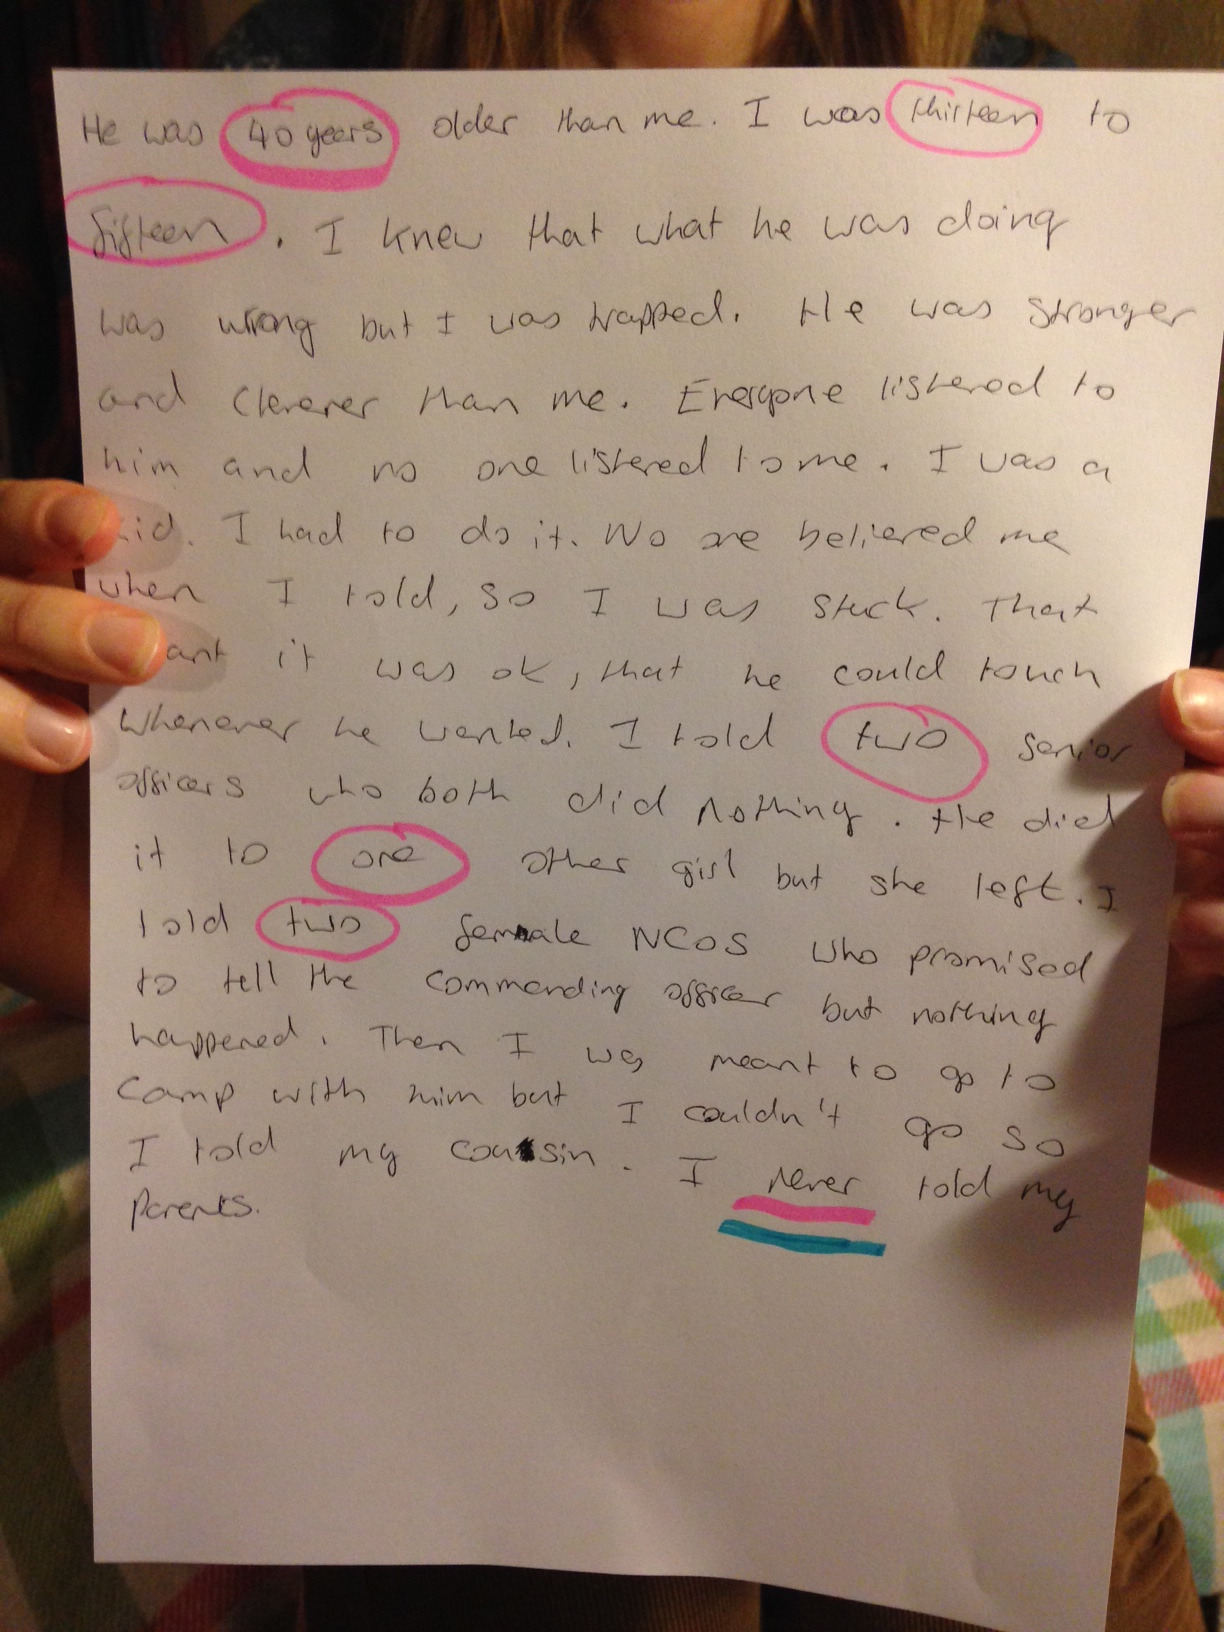 He was 40 years older than me. I was thirteen to
fifteen. I knew that what he was doing
was wrong but I was trapped. He was stronger
and cleverer than me. Everyone listened to
him and no one listened to me. I was a
kid. I had to do it. No one believed me
when I told, so I was stuck. That
meant it was ok, that he could touch
whenever he wanted. I told two senior
officers who both did nothing. He did
it to one other girl but she left. I
told two female NCOs who promised
to tell the commanding officer but nothing
happened. Then I was meant to go to
camp with him but I couldn't go so
I told my cousin. I never told my
parents.